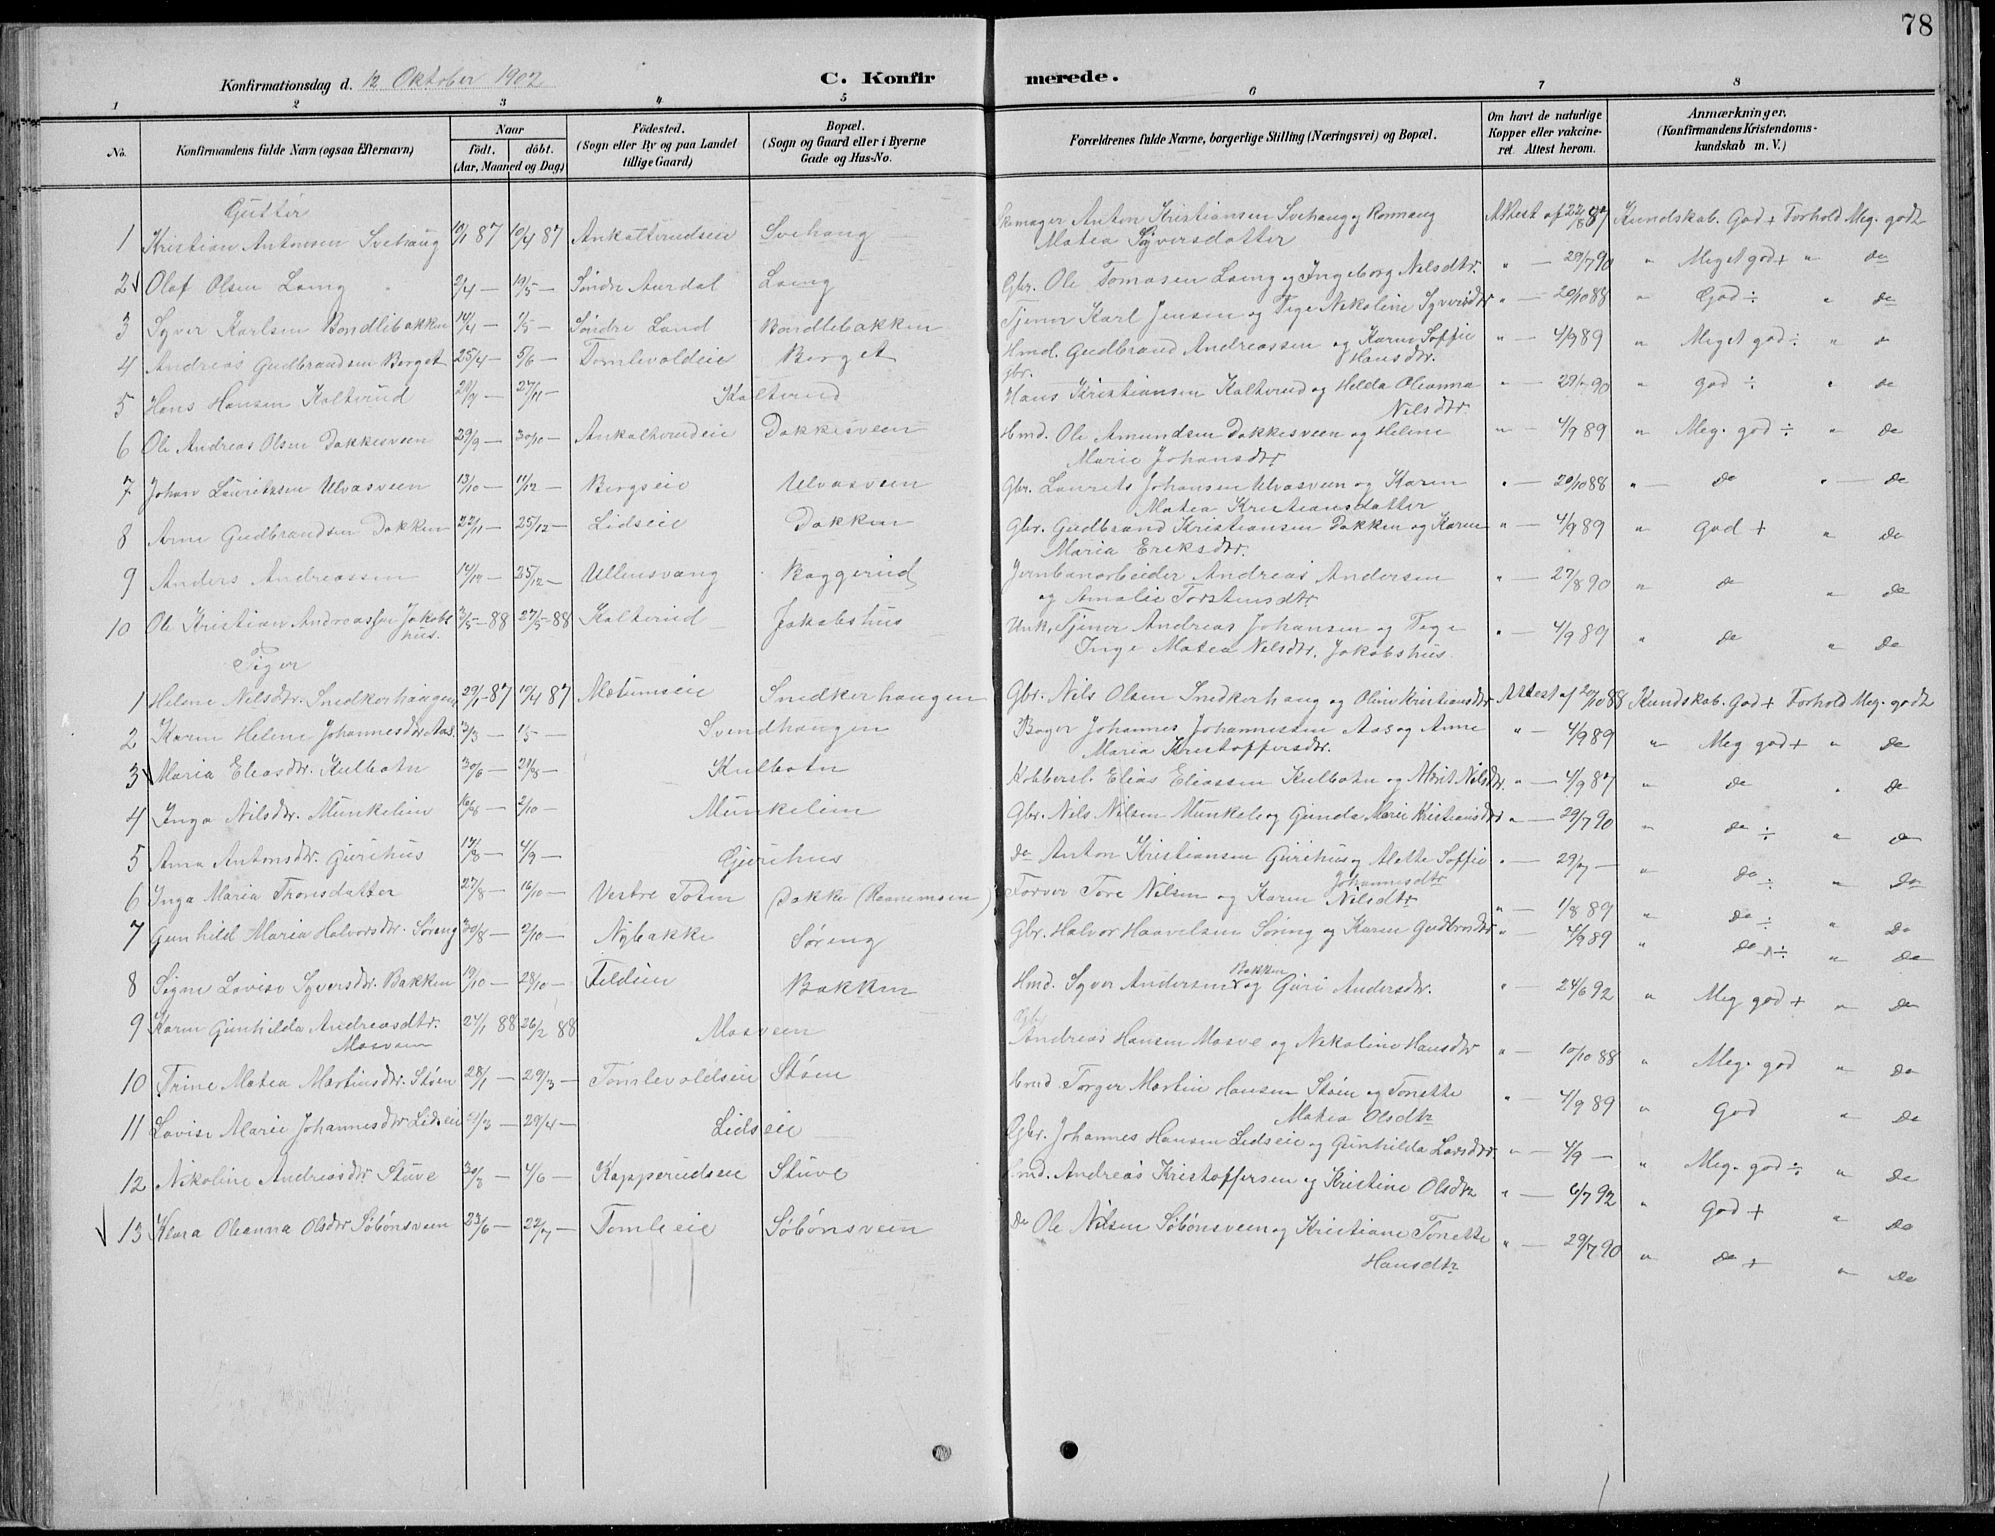 78
Konfirmationsdag d. 12 Oktober 1902
C. Konfirmerede.
1 2 3 4 5 6 7 8
No.
Konfirmandens fulde Navn (ogsaa Efternavn)
Naar
Födt. döbt.
(Aar, Maaned og Dag)
Födested.
(Sogn eller By og paa Landet
tillige Gaard)
Bopæl.
(Sogn og Gaard eller i Byerne
Gade og Hus-No.
Forældrenes fulde Navne, borgerlige Stilling (Næringsvei) og Bopæl.
Om havt de naturlige
Kopper eller vakcine-
ret. Attest herom.
Anmærkninger.
(Konfirmandens Kristendoms-
kundskab m. V.)
Gutter
1 Kristian Antonsen Svehaug 10/1 87 10/4 87 Ankalterudseie Svehaug Skomager Anton Kristiansen Svehaug og Ronnaug Attest af 22/8 87 Kundskab. God + Forhold Meg. godt
Matea Syversdatter
2 Olaf Olsen Laing 2/4 — 19/5 — Söndre Aurdal Laing Gbr. Ole Tomasen Laing og Ingeborg Nilsdtr. " — 29/7 90 " Meget god + " do
3 Syver Karlsen Bondlibakken 14/4 — 1/5 — Söndre Land Bondlebakken Tjener Karl Jensen og Pige Nikoline Syversdtr " — 20/10 88 " God ÷ " do
4 Andreas Gudbrandsen Berget 25/4 — 5/6 — Tomlevoldeie Berget Hmd. Gudbrand Andreassen og Karen Soffie " — 4/9 89 " Meget god ÷ " do
Hansdtr.
5 Hans Hansen Kalterud 27/11 — Kalterud Gbr. Hans Kristiansen Kalterud og Helda Oleanna " — 90 " god ÷ " do
Nilsdtr.
6 Ole Andreas Olsen Dakkesveen 29/9 — 30/10 — Ankalterudeie Dokkesveen Hmd. Ole Amundsen Dokkesveen og Helene " — 4/9 89 " Meg. god ÷ " do
Marie Johansdtr
7 Johan Lauritsen Ulvasveen 13/10 — 11/12 — Bergseie Ulvasveen Gbr. Laurits Johansen Ulvasveen og Karen " — 20/10 88 " — do " — do
Matea Kristiansdatter
8 Arne Gudbrandsen Dokken 22/11 — 25/12 — Lidseie Dokken Gbr. Gudbrand Kristiansen Dokken og Karen " — 4/9 89 " god + " do
Maria Eriksdtr.
9 Anders Andreassen 25/12 — Ullensvang Baggerud Jernbanarbeider Andreas Andersen " — 27/8 90 " do " do
og Amalie Torstensdtr
10 Ole Kristian Andreassen Jakobs 3/5 — 88 27/5 — 88 Kalterud Jakobshus Unk. Tjener Andreas Johansen og Pige " — 4/9 89 " do " do
hus. Inge Matea Nilsdtr. Jakobshus.
Piger
1 Helene Nilsdtr. Snedkerhaugen 29/1 — 87 10/4 87 Mætumseie Snedkerhaugen Gbr. Nils Olsen Snedkerhaug og Oline Kristiansdtr Attest af 20/10 88 Kundskab. God + Forhold Meg. godt
2 Karen Helene Johannesdtr Aas. 13/3 — 1/5 — Svendhaugen Bager Johannes Johannessen Aas og Anne " — 4/9 89 " Meg god + " do
Maria Kristoffersdtr.
3 Maria Eliasdtr. Kulbotn 30/6 — 29/8 — Kulbotn Kobbersl. Elias Eliassen Kulbotn og Marit Nilsdtr. " — 4/9 87 " do " do
4 Inga Nilsdtr. Munkelien 16/8 — 2/10 — Munkeliin Gbr. Nils Nilsen Munkeli og Gunda Marie Kristiansdtr " — 29/7 90 " do ÷ " do
5 Anna Antonsdtr. Gurihus 4/9 — Gjurihus do Anton Kristiansen Gurihus og Alette Soffie " — 29/7 — " do ÷ " do
Johannesdtr
6 Inga Maria Tronsdatter 27/8 — 16/10 — Vestre Toten Dokke Farver Tore Nilsen og Karen Nilsdtr " — 1/8 89 " do ÷ " do
7 Gunhild Maria Halvorsdtr. Søreng 30/8 — 2/10 — Nybakke Søreng Gbr. Halvor Haavelsen Søreng og Karen Gudbrsdtr " — 4/9 89 " do ÷ " do
8 Signe Lovise Syversdtr. Bakken 19/10 — 28/10 — Feldeie Bakken Hmd. Syver Andersen Bakken og Guri Andersdtr. " — 24/6 92 " Meg god + " do
9 Karen Gunhilda Andreasdtr. 27/1 88 26/2 88 Mosveen Gbr. Andreas Hansen Mosve og Nikoline Hansdtr " — 10/10 88 " Meg. god " do
Mosveen
10 Trine Matea Martinsdtr. Støen 28/1 — 29/3 — Tomlevoldseie Støen Hmd Torger Martin Hansen Støen og Tonette " — 4/9 89 " God " do
Matea Olsdtr
11 Lovise Marie Johannesdtr Lidseie 29/4 — Lidseie Gbr. Johannes Hansen Lidseie og Gunhilda Larsdtr " — 4/9 — " Meg. god ÷ " do
12 Nikoline Andreasdtr Stuve 30/3 — 4/6 — Kopperudseie Stuve Hmd. Andreas Kristoffersen og Kristine Olsdtr " — 6/7 92 " God + " do
13 Klara Oleanna Olsdtr Søbönsveen 23/6 — 22/7 — Tomleeie Søbönsveen do Ole Nilsen Søbönsveen og Kristiane Tonette " — 29/7 90 " do + " do
Hansdtr